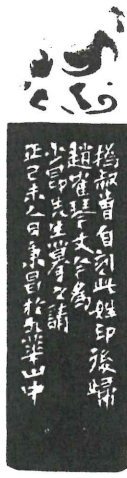 撝叔曾自刻此姓印後歸
趙隺琴丈今為
少昂先生摹之請
正己未人日秉昌於九華山中